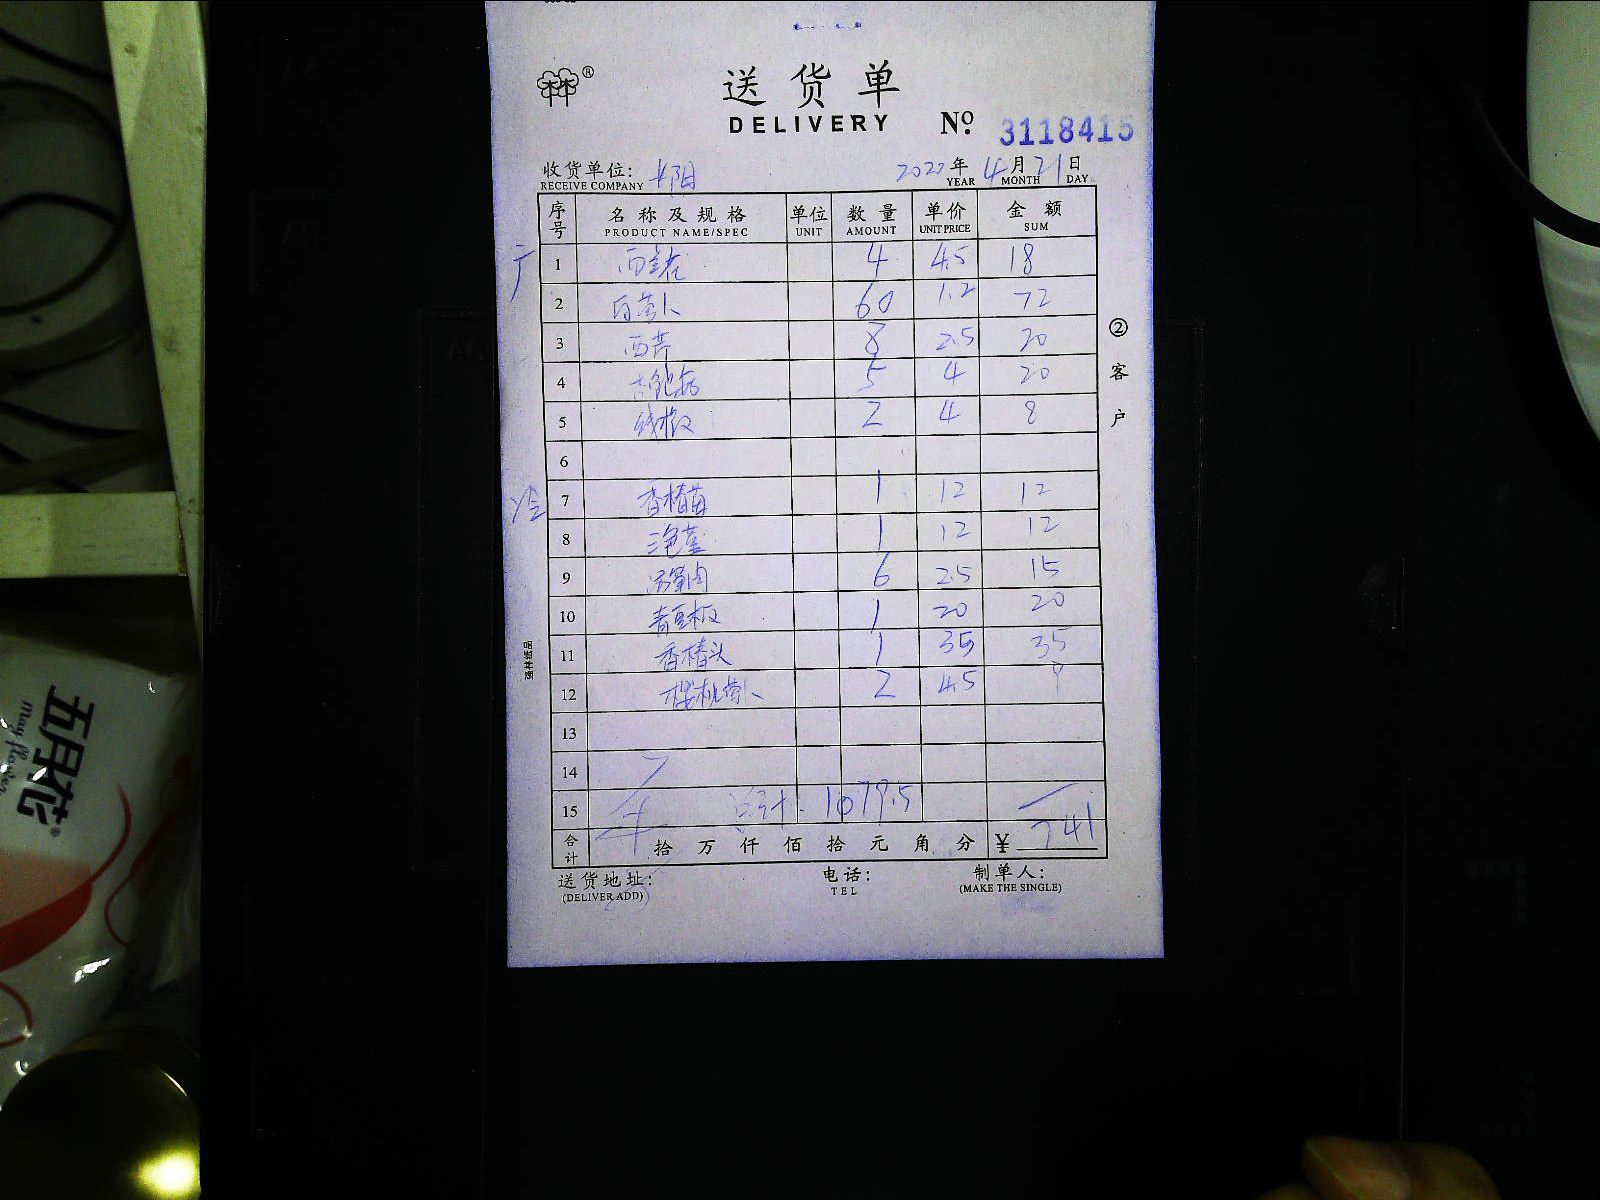 送货单
DELIVERY
№ 3118415
收货单位: 阳
RECEIVE COMPANY
2022年 4月 21日
YEAR MONTH DAY
序号 名称及规格 单位 数量 单价 金额
PRODUCT NAME/SPEC UNIT AMOUNT UNIT PRICE SUM
1 4 4.5 18
2 白萝卜 60 1.2 72
3 西芹 8 2.5 20
4 5 4 20
5 线椒 2 4 8
6
冷 7 香椿苗 1 12 12
8 三色堇 1 12 12
9 6 2.5 15
10 青豆板 1 20 20
11 香椿头 1 35 35
12 樱桃萝卜 2 4.5 9
13
14
15 总计. 1079.5
合计 拾 万 仟 佰 拾 元 角 分 ¥ 241
送货地址:
(DELIVER ADD)
电话:
TEL
制单人:
(MAKE THE SINGLE)
② 客户
强林纸品
五月花®
May flower